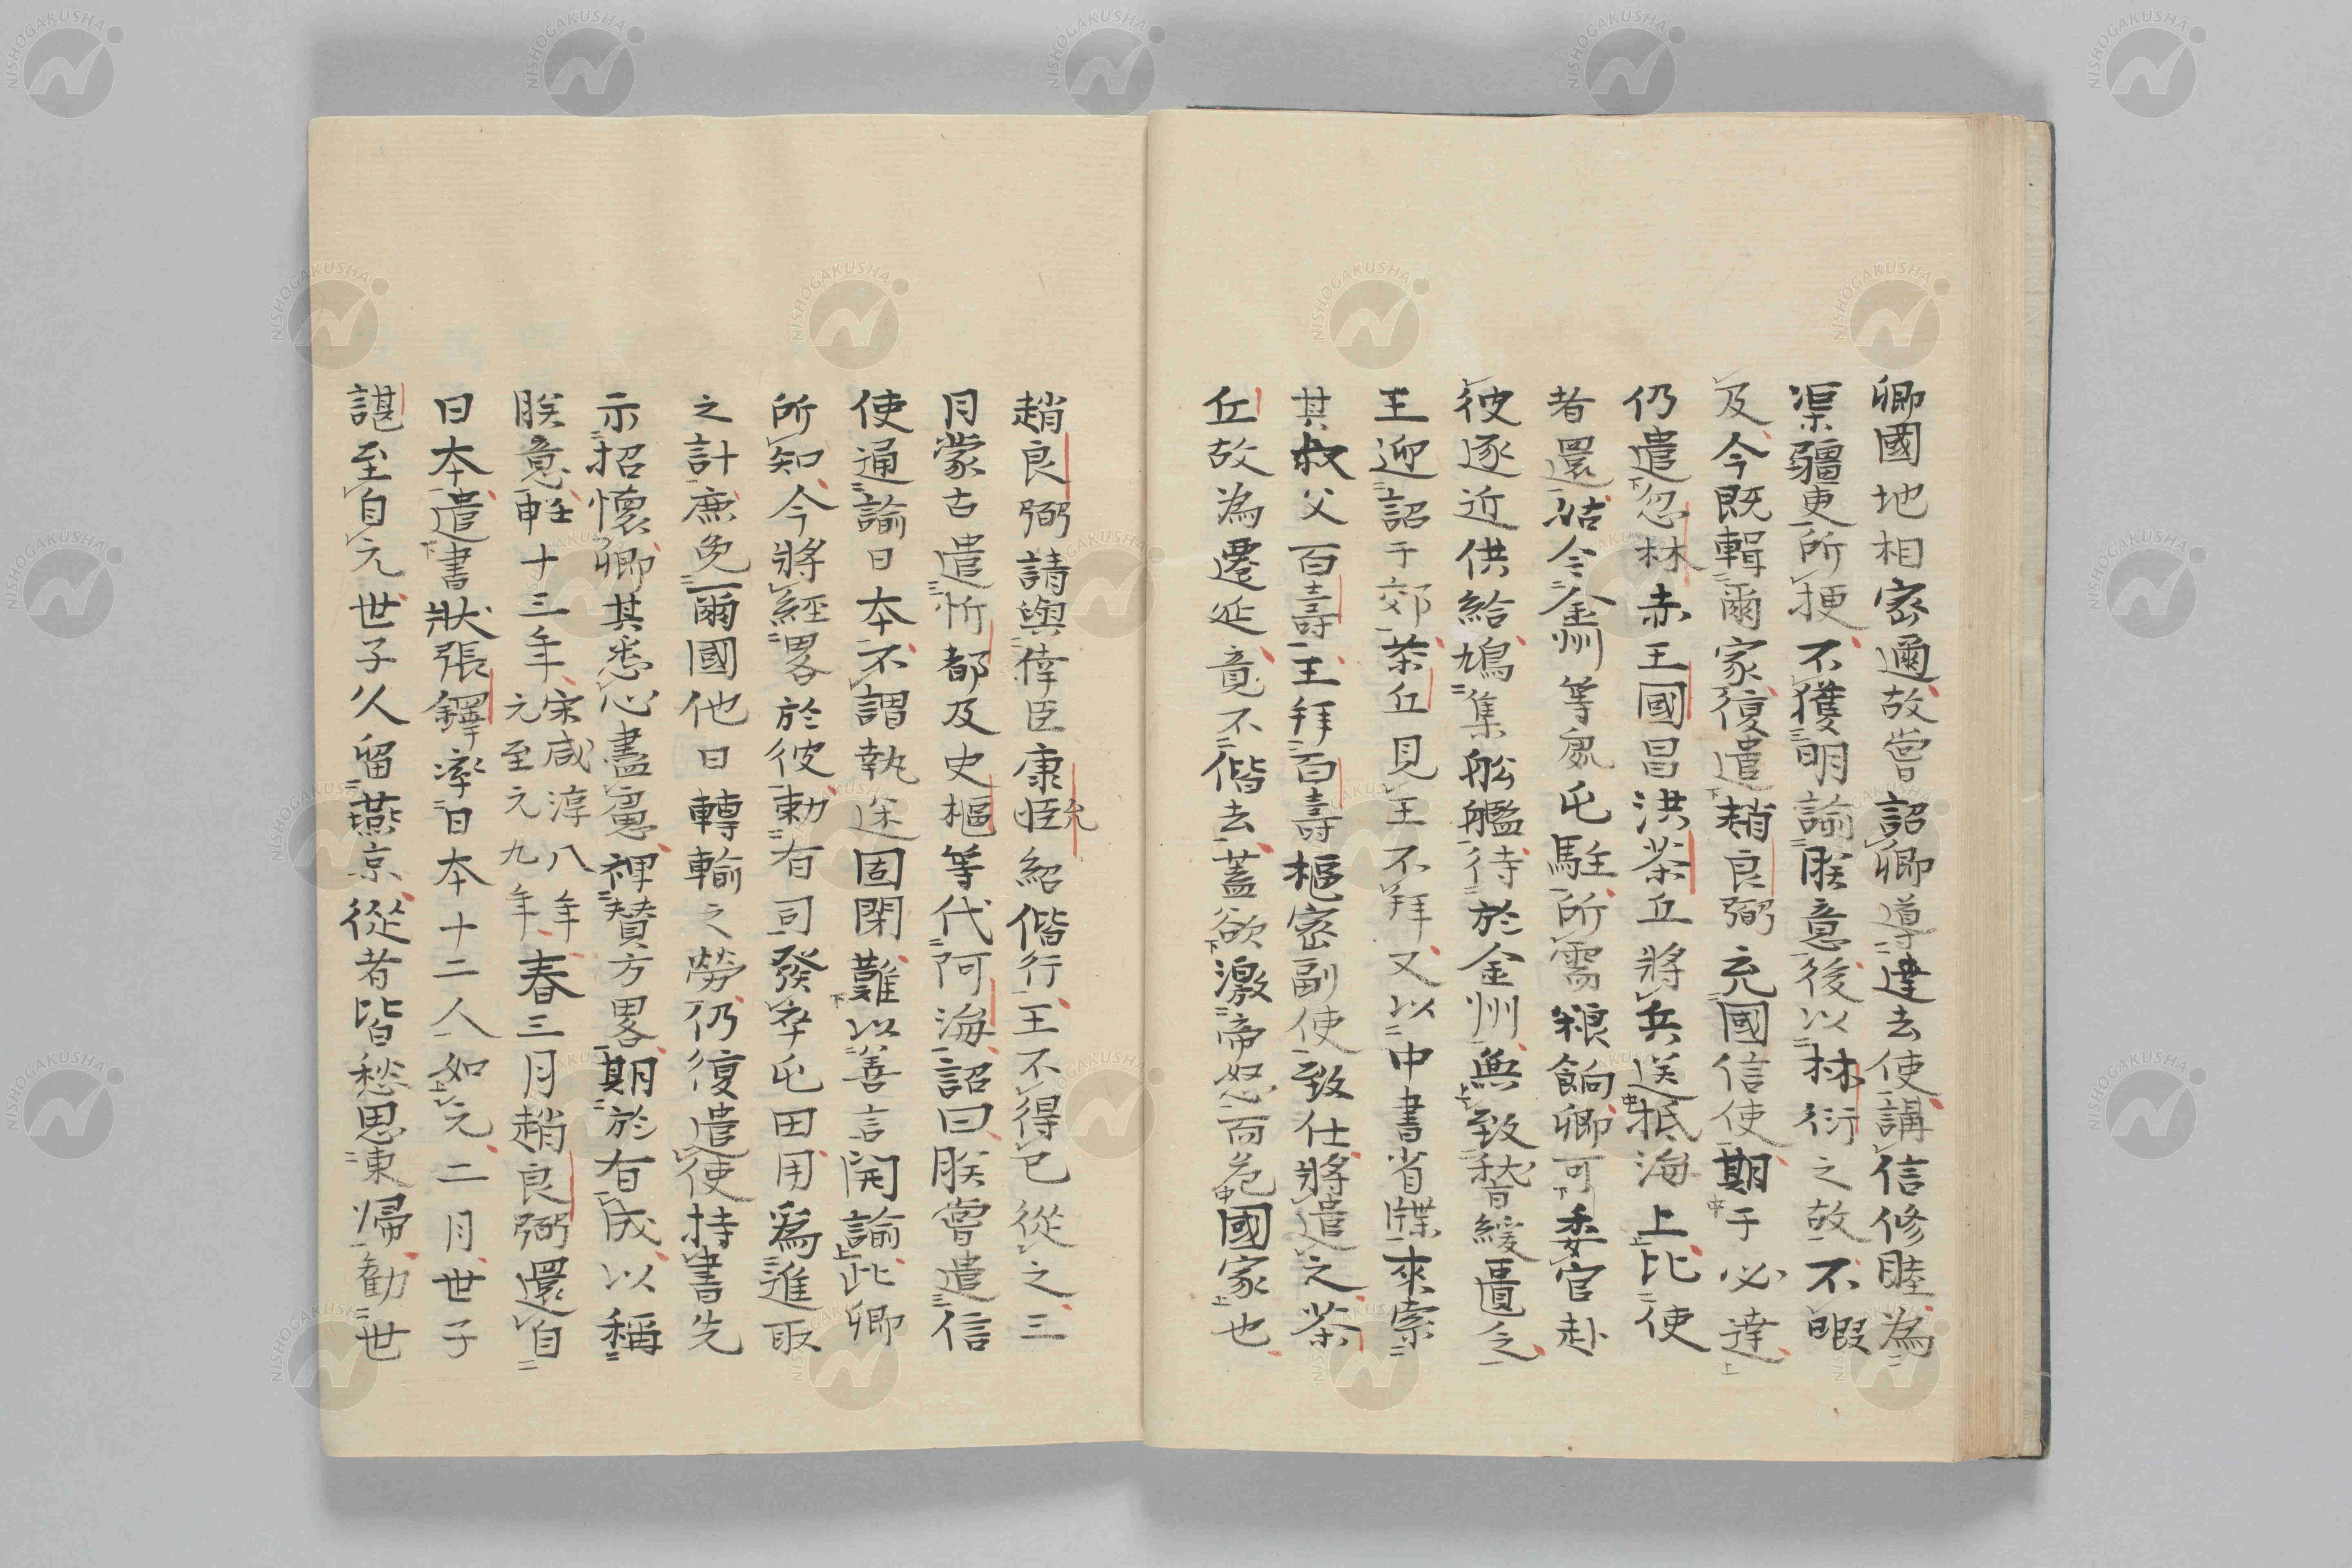 卿國地相密邇故嘗詔卿導達去使講信修睦為
渠疆吏所梗不獲明諭朕意後以林衍之故不暇
及今既輯爾家復遣趙良弼充國信使期于必達
仍遣忽林赤王國昌洪茶丘將兵送抵海上比使
者還姑令金州等處屯駐所需粮餉卿可委官赴
彼逐近供給鳩集舩艦待於金州無致稽緩匱乏
王迎詔于郊茶丘見王不拜又以中書省牒來索
其叔父百壽王拜百壽樞密副使致仕將遣之茶
丘故為遷延竟不偕去蓋欲激帝怒而危國家也
趙良弼請與倖臣康允紹偕行王不得已從之三
月蒙古遣忻都及史樞等代阿海詔曰朕嘗遣信
使通諭日本不謂執迷固閉難以善言開諭此卿
所知今將經畧於彼勅有司發卒屯田用爲進取
之計庶免爾國他日轉輸之勞仍復遣使持書先
示招懷卿其悉心盡慮裨賛方畧期於有成以稱
朕意軠十三年宋咸淳八年元至元九年春三月趙良弼還自
日本遣書狀張鐸率日本十二人如元二月世子
諶至自元世子久留燕京從者皆愁思東帰勸世
NISHOGAKUSHA